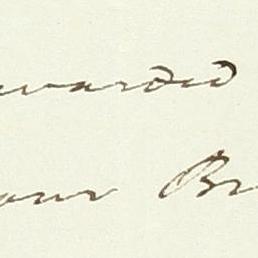 warded
our Br